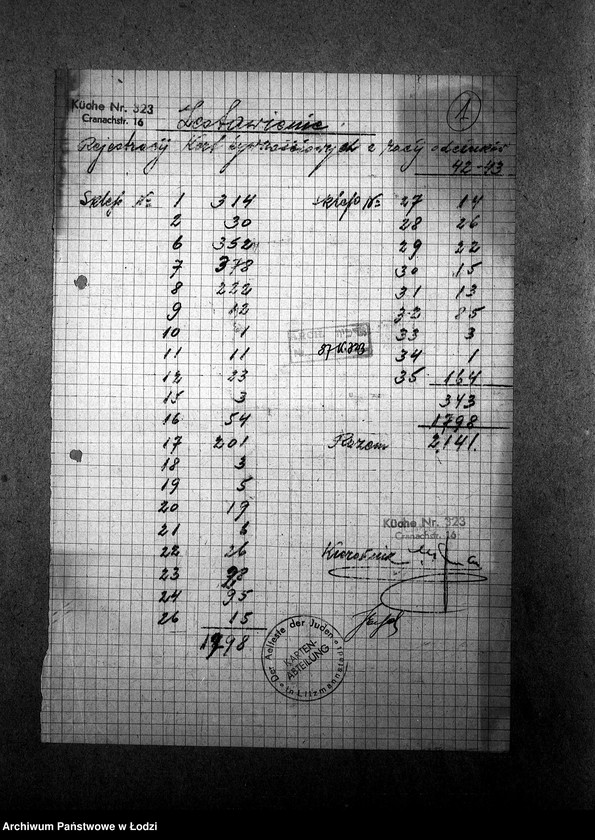 Küche Nr. 323
Cranachstr. 16
1
Zestawienie
Rejestracji Kart żywnościowych z racji odcinków
42-43
Sklep № 1 314
2 30
6 352
7 378
8 222
9 12
10 1
11 11
12 23
15 3
16 54
17 201
18 3
19 5
20 19
21 6
22 26
23
24 95
26 15
1798
Sklep № 27 14
28 26
29 22
30 15
31 13
32 85
33 3
34 1
35 164
343
1798
Razem 2,141.
Küche Nr. 323
Cranachstr. 16
Kierownik
Der Aelteste der Juden
in Litzmannstadt
KARTEN-
ABTEILUNG
Archiwum Państwowe w Łodzi